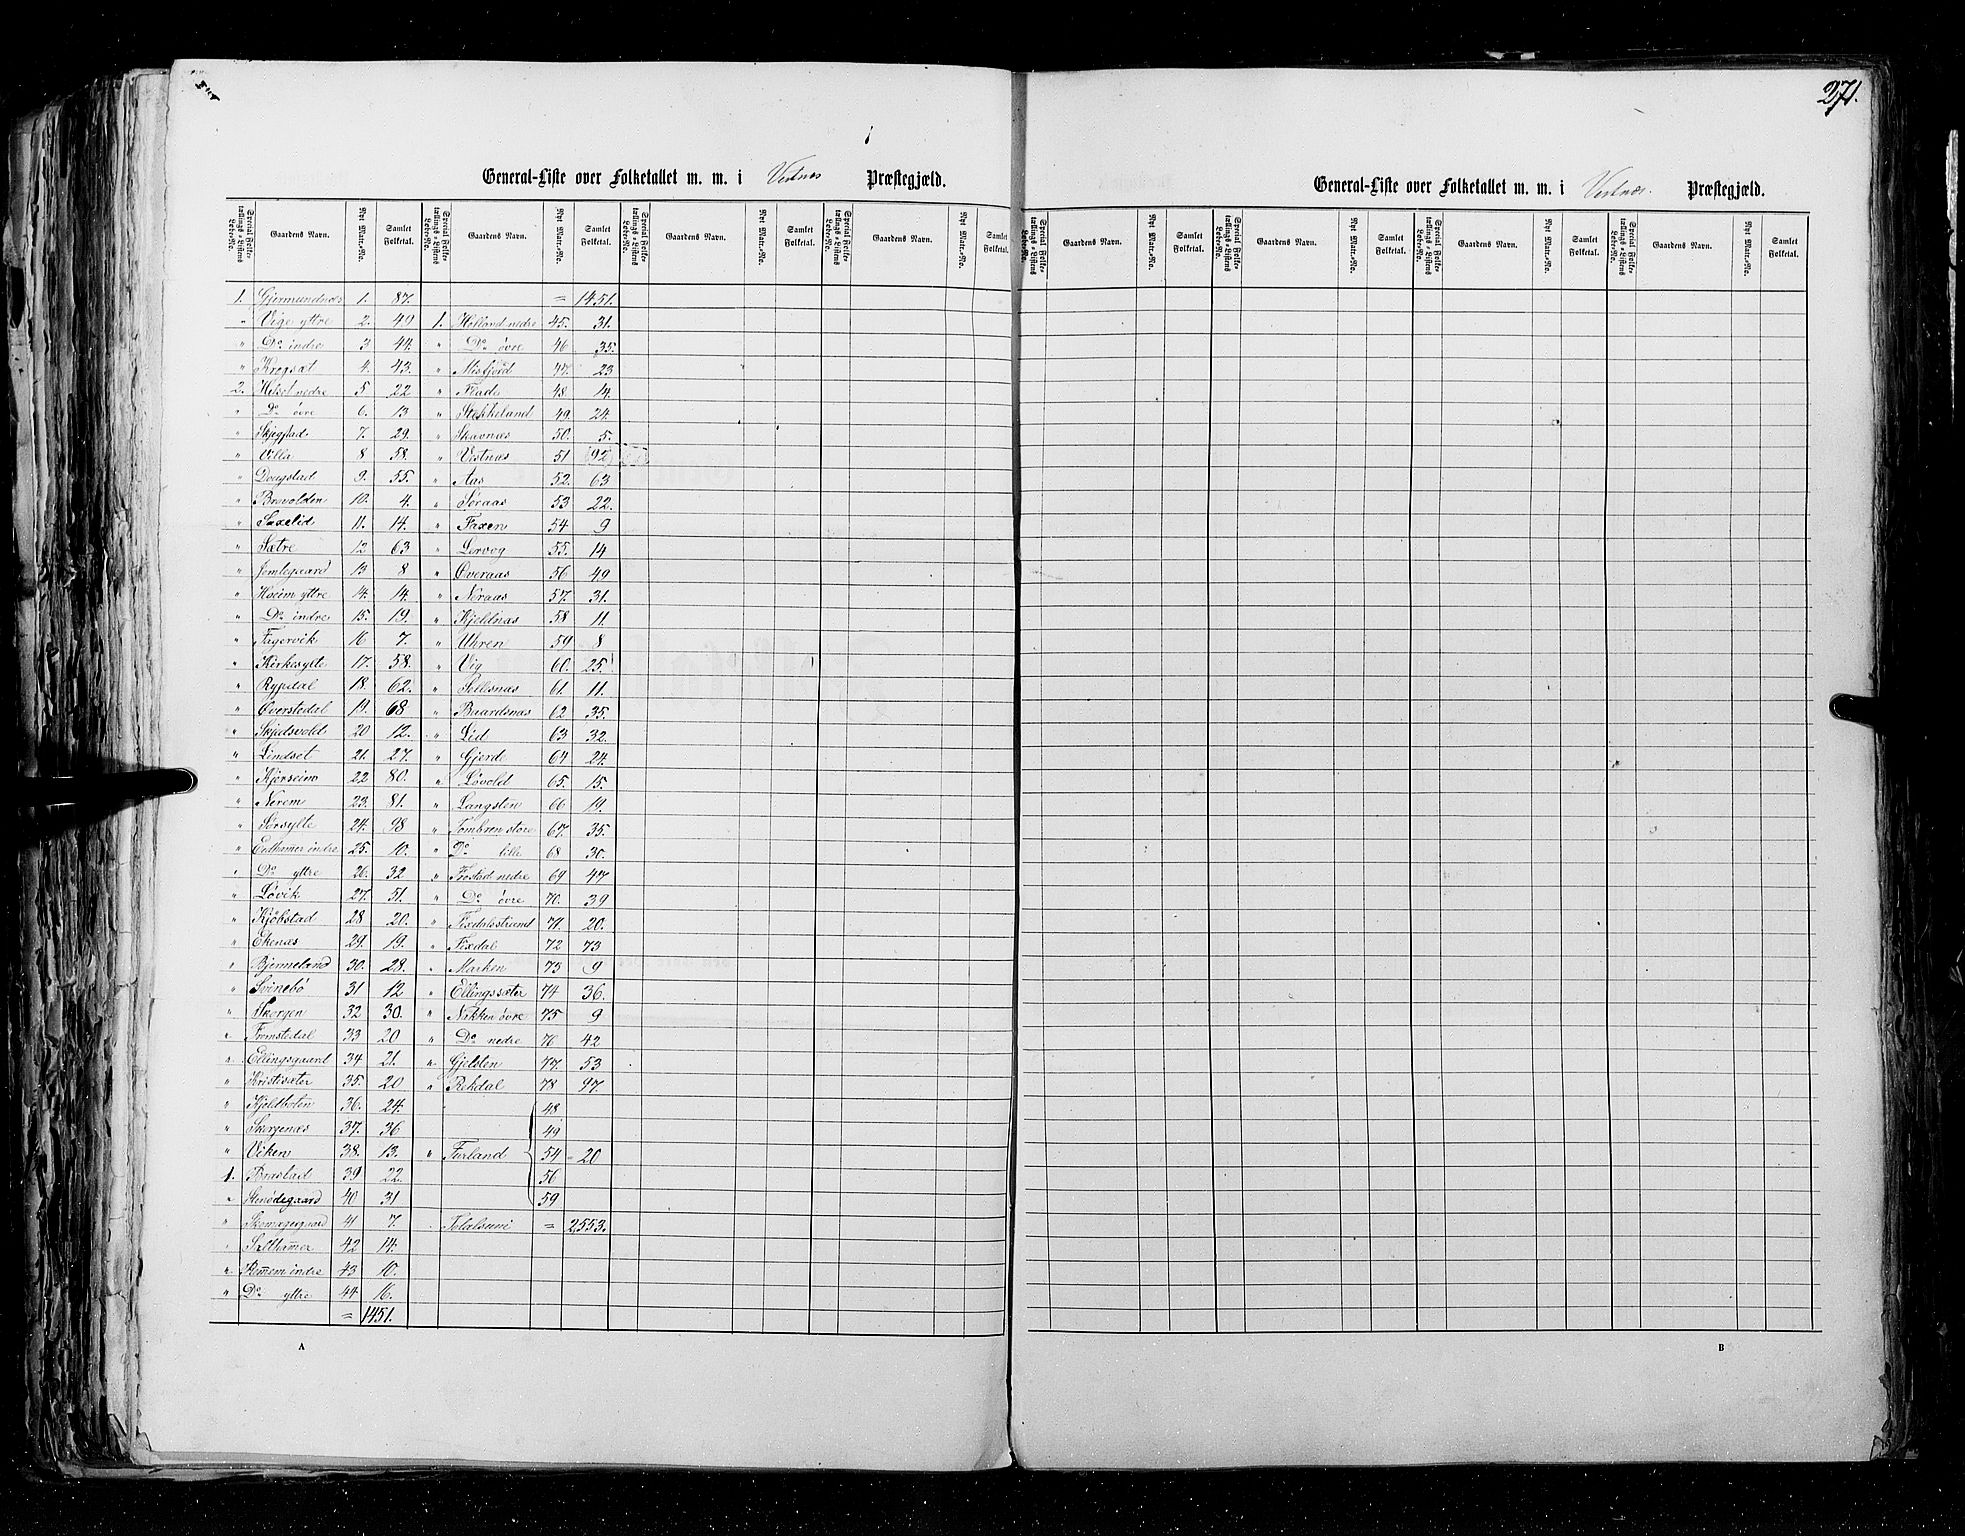 271.
General-Liste over Folketallet m. m. i Vestnes Præstegjæld.
Special Folketællings-Listens Løbe-No. Gaardens Navn. Nyt Matr.-No. Samlet Folketal. Special Folketællings-Listens Løbe-No. Gaardens Navn. Nyt Matr.-No. Samlet Folketal. Special Folketællings-Listens Løbe-No. Gaardens Navn. Nyt Matr.-No. Samlet Folketal. Special Folketællings-Listens Løbe-No. Gaardens Navn. Nyt Matr.-No. Samlet Folketal.
1. Gjermundnæs 1. 87. = 1451.
" Vige yttre 2. 49 1. Helland nedre 45. 31.
" Do indre 3 44. " Do øvre 46 35.
" Krogsæt 4. 43. " Misfjord 47. 23
2. Helset nedre 5 22 " Flade 48 14.
" Do øvre 6. 13 " Stokkeland 49. 24.
" Skjegstad 7. 29. " Skavnæs 50. 5.
" Villa 8 58. " Vestnæs 51 92
" Daugstad 9. 55. " Aas 52. 63
" Bravolden 10. 4. " Søraas 53 22.
" Saxelid 11. 14. " Faxen 54 9
" Sætre 12 63 " Lervog 55. 14
" Jemtegaard 13 8 " Øveraas 56 49
" Hoeim yttre 14. 14. " Noraas 57. 31.
" Do indre 15. 19. " Kjeldnæs 58 11.
" Fagervik 16 7. " Uhren 59 8
" Kirkesylte 17. 58. " Vig 60. 25.
" Rypdal 18. 62. " Sellsnæs 61. 11.
" Øverstedal 19. 68 " Baardsnæs 62 35.
" Skjedsvold 20 12. " Lid 63 32.
" Lindset 21. 27. " Gjerde 64 24.
" Kjerseim 22 80. " Løvold 65. 15.
" Nerem 23. 81. " Langsten 66 19.
" Sørsylte 24. 98 " Tombren store 67. 35.
" Eidhamer indre 25. 10. " Do lille 68 30.
" Do yttre 26. 32 " Frostad nedre 69 47
" Løvik 27. 51. " Do øvre 70. 39
" Kjøbstad 28 20. " Fixdalsstrand 71. 20.
" Ekenæs 29. 19. " Fixdal 72 73
" Bjermeland 30. 28. " Marken 73 9
" Svinebø 31 12 " Ellingssæter 74 36.
" Skorgen 32 30. " Nakken øvre 75 9
" Tromstedal 33 20 " Do nedre 76 42
" Ellingsgaard 34 21. " Gjelsten 77. 53
" Kristisæter 35. 20 " Rekdal 78 97.
" Kjeldboten 36. 24. 48
" Skorgenæs 37. 36 49
" Viken 38. 13. " Furland 54 = 20
1. Brastad 39 22. 56
" Stenødegaard 40 31 59
" Skomagergaard 41 7. Totalsum = 2553.
" Salthamer 42 14.
" Remem indre 43 10.
" Do yttre 44 16.
= 1451.
A
General-Liste over Folketallet m. m. i Vestnæs. Præstegjæld.
Special Folketællings-Listens Løbe-No. Gaardens Navn. Nyt Matr.-No. Samlet Folketal. Special Folketællings-Listens Løbe-No. Gaardens Navn. Nyt Matr.-No. Samlet Folketal. Special Folketællings-Listens Løbe-No. Gaardens Navn. Nyt Matr.-No. Samlet Folketal. Special Folketællings-Listens Løbe-No. Gaardens Navn. Nyt Matr.-No. Samlet Folketal.
B